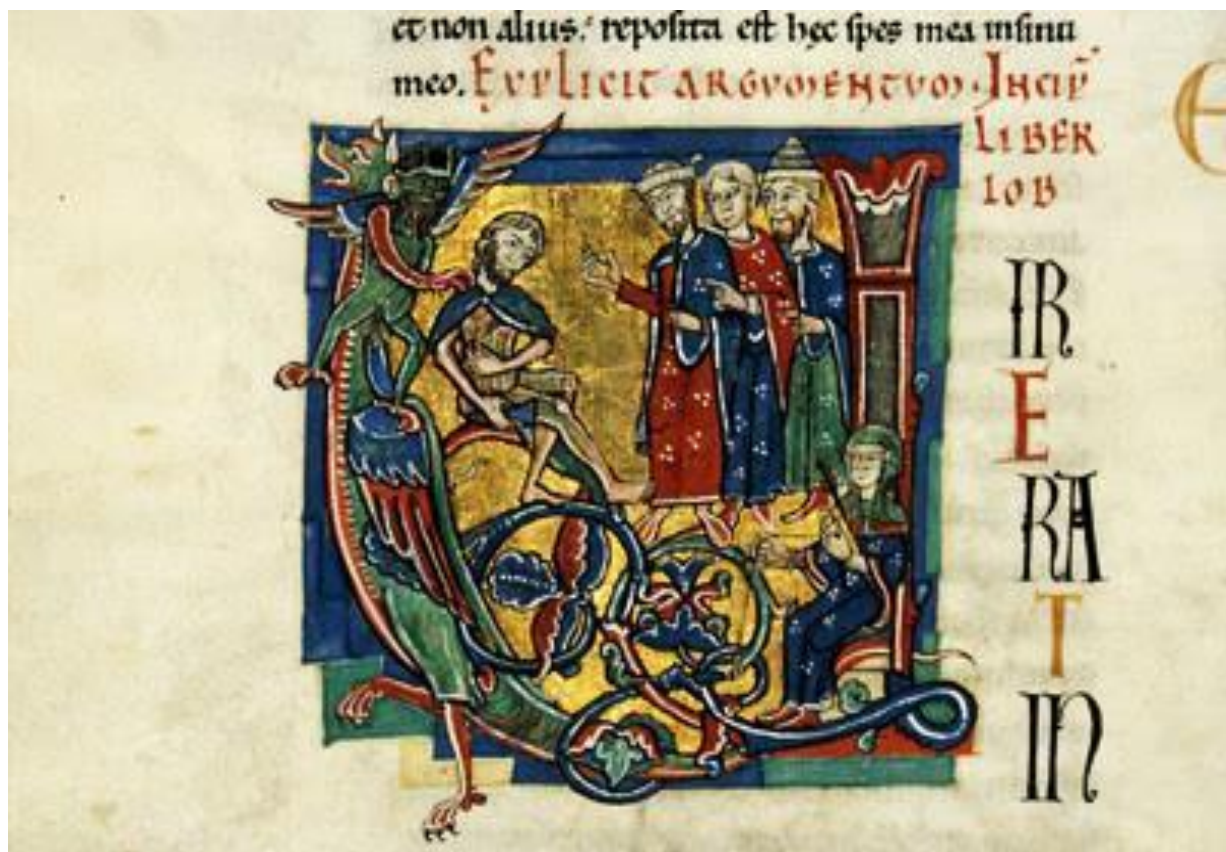 et non alius: reposita est hęc spes mea in sinu
meo. EXPLICIT ARGUMENTUM. INCIP̄
LIBER
IOB
IR
E
RA
T
IN